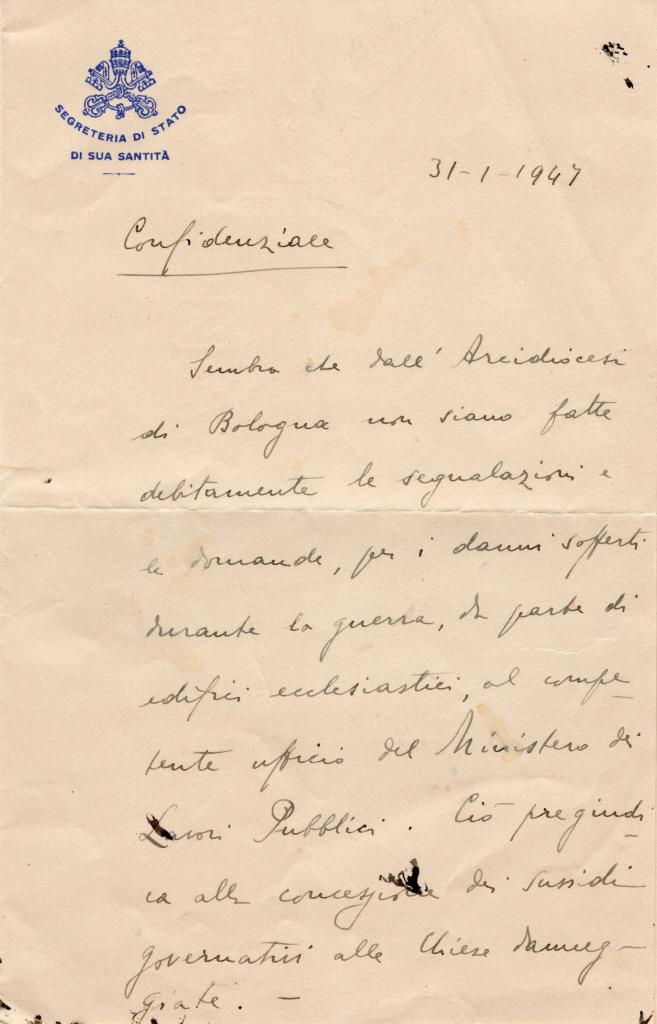 SEGRETERIA DI STATO
DI SUA SANTITÀ
31-1-1947
Confidenziale
Sembra che dall' Arcidiocesi
di Bologna non siano fatte
debitamente le segnalazioni e
le domande, per i danni sofferti
durante la guerra, da parte di
edifici ecclesiastici, al compe-
tente ufficio del Ministero dei
Lavori Pubblici. Ciò pregiudi-
ca alla concessione dei sussidi
governativi alle Chiese danneg-
giate. -